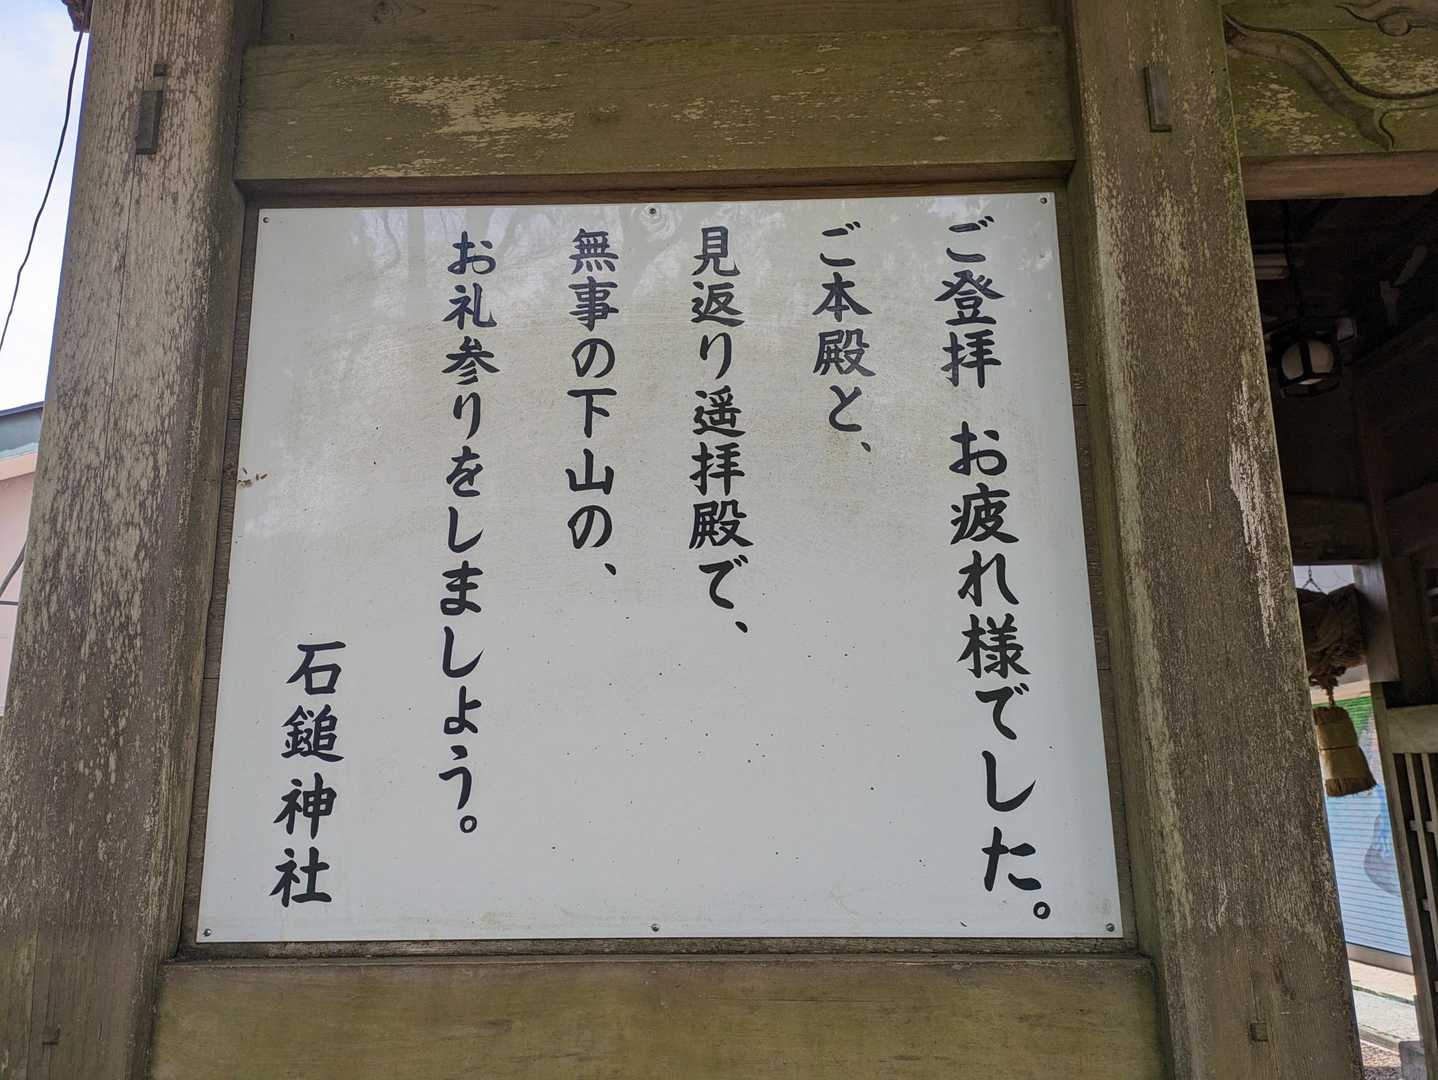 ご登拝 お疲れ様でした。
ご本殿と、
見返り遥拝殿で、
無事の下山の、
お礼参りをしましょう。
石鎚神社